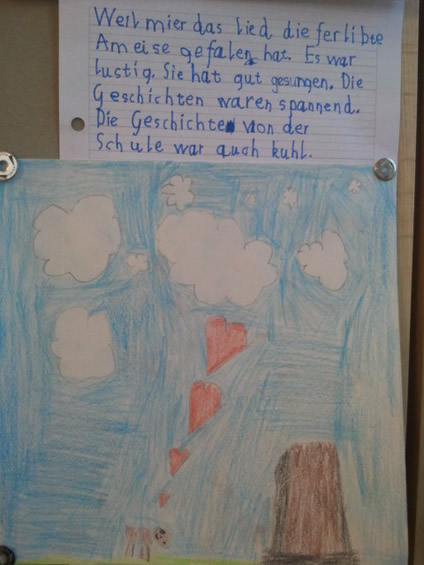 Weil mier das lied die ferlibte
Ameise gefalen hat. Es war
lustig. Sie hat gut gesungen. Die
Geschichten waren spannend.
Die Geschichte von der
Schule war auch kuhl.